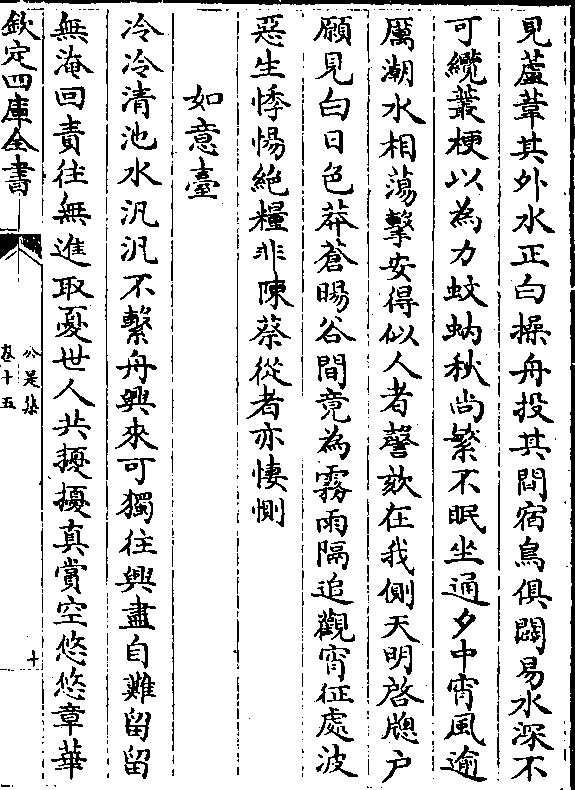 見蘆葦其外水正白操舟投其間宿鳥俱闢易水深不
可纜叢梗以為力蚊蚋秋尚繁不眠坐通夕中宵風逾
厲潮水相蕩擊安得似人者謦欬在我側天明啓牕户
願見白日色莽蒼暘谷間竟為霧雨隔追觀宵征處波
惡生悸惕絶糧非陳蔡從者亦悽惻
如意臺
冷冷清池水汎汎不繫舟興來可獨往興盡自難留留
無淹回責往無進取憂世人共擾擾真賞空悠悠章華
欽定四庫全書
公是集
卷十五
十